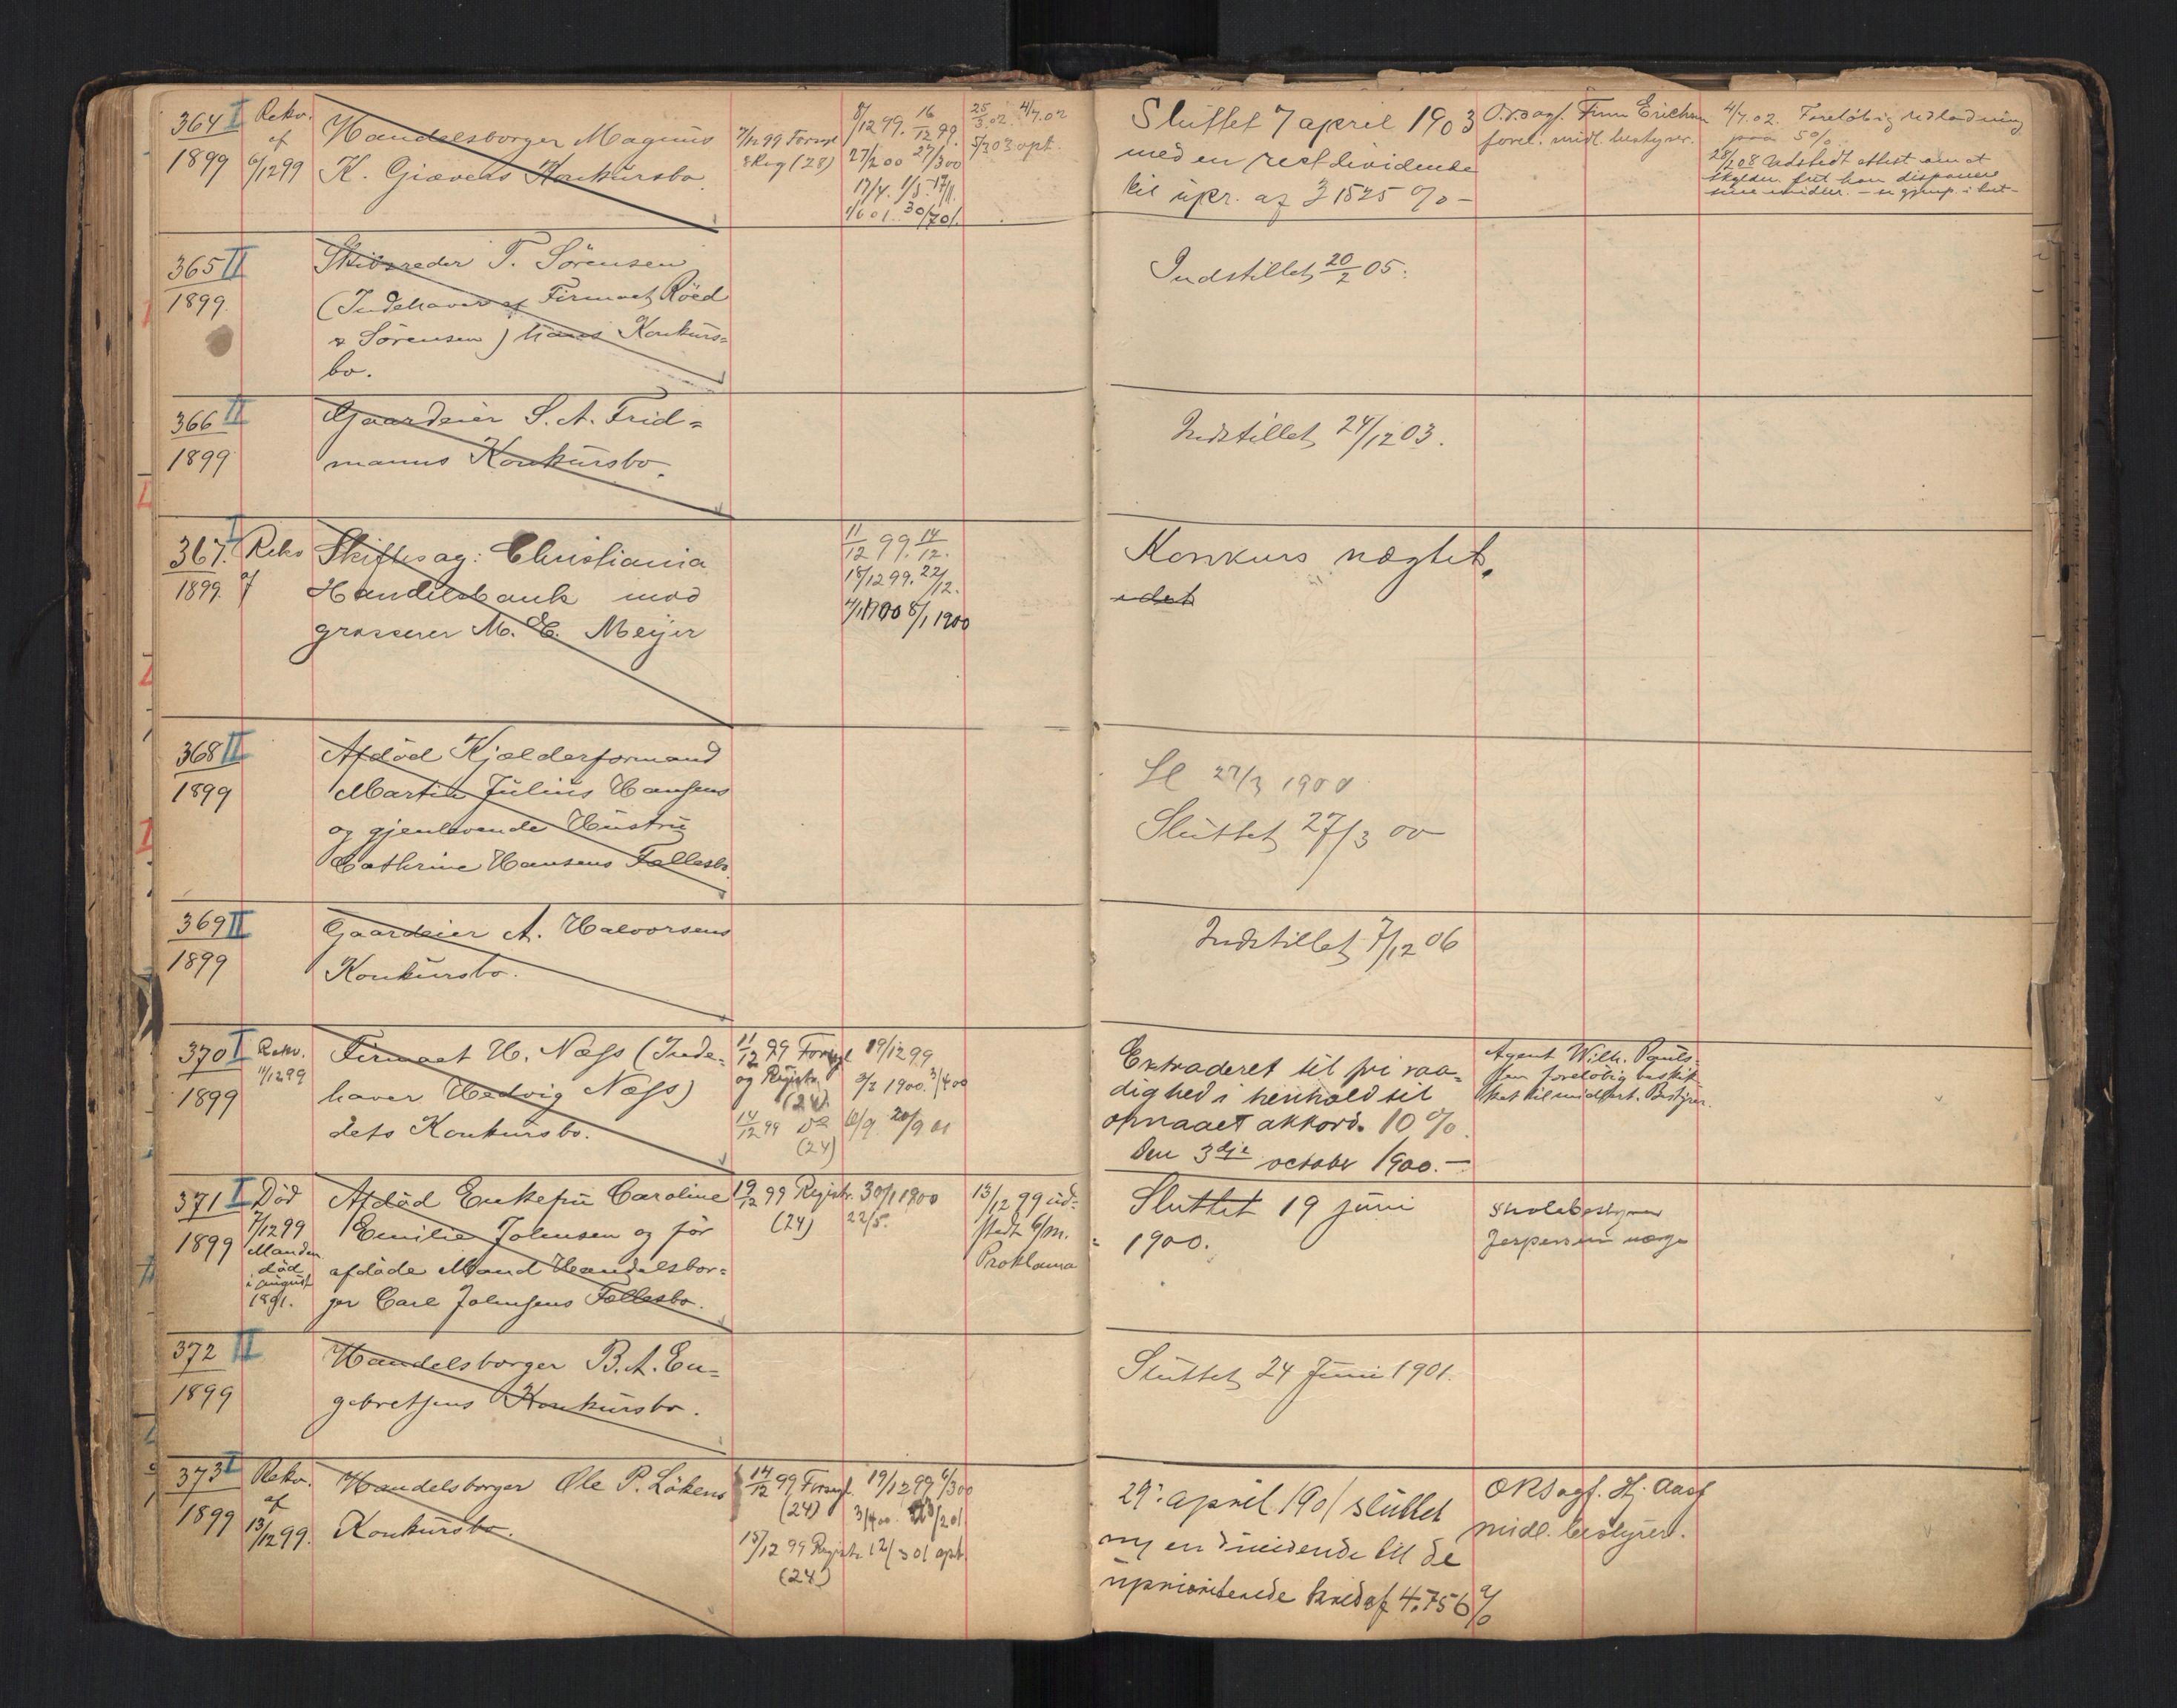 364 I
1899
Rekv.
af
6/12 99
Handelsborger Magnus
K. Giævers Konkursbo.
7/12 99 Forsegl
& Reg (28)
8/12 99. 16/12 99.
27/2 00 27/3 00
25/3 02 4/7.02
Sluttet 7 april 1903
med en restdividende
til upr. af 3 1525 % -
Orsagf. Finn Erichsen
forel. midl. bestyrer.
4/7.02. Foreløbig udlodning
paa 5 %
365 II
1899.
Skibsreder T. Sörensen
(Indehaver af Firmaet Röed
& Sörensen) hans Konkurs=
bo.
Indstillet 20/2 05.
366 II
1899
Gaardeier S. A. Frid=
manns Konkursbo.
Indstillet 24/12 03.
367. I
1899.
Rekv
af
Skiftesag: Christiania
Handelsbank mod
grosserer M. E. Meyer
11/12 99. 14/12.
18/12 99. 22/12.
4/1 1900 8/1 1900
Konkurs nægtet.
368 II
1899
Afdöd Kjælderformand
Martin Julius Hansens
og gjenlevende Hustru
Cathrine Hansens Fællesbo.
Sl 27/3 1900
Sluttet 27/3 00
369 II
1899
Gaardeier A. Halvorsens
Konkursbo.
Indstillet 7/12 06
370 I
1899
Rekv.
11/12 99
Firmaet H. Næss (Inde=
haver Hedvig Næss)
dets Konkursbo.
11/12 99 Forsegl
og Registr.
(24)
14/12 99 do
(24)
19/12 99
2/2 1900. 3/4 00
Extraderet til fri raa=
dighed i henhold til
opnaaet akkord. 10 %.
Den 3dje october 1900. -
Agent Wilh. Pauls-
sen foreløbig beskik-
ket til midlert. Bestyrer.
371 I
1899
Död
7/12 99
Manden
död
i august
1891.
Afdöd Enkefru Caroline
Emilie Johnsen og för
afdöde Mand Handelsbor=
ger Carl Johnsens Fællesbo.
19/12 99 Registr.
(24)
30/1 1900
22/5.
13/12 99 ud-
stedt 6/m.
Proklama
Sluttet 19 juni
1900.
Skolebestyrer
Jespersen værge
372 II
1899
Handelsborger B. A. En=
gebretsens Konkursbo.
Sluttet 24 Juni 1901.
373 I
1899
Rekv.
af
13/12 99.
Handelsborger Ole P. Lökens
Konkursbo.
14/12 99 Forsegl.
(24)
15/12 99 Registr.
(24)
19/12 99 6/3 00
3/4 00.
12/3 01 opt.
29. april 1901 sluttet
m. en dividende til de
uprioriterede kred af 4.756 %
ORSagf. Hj. Aass
midl. bestyrer.